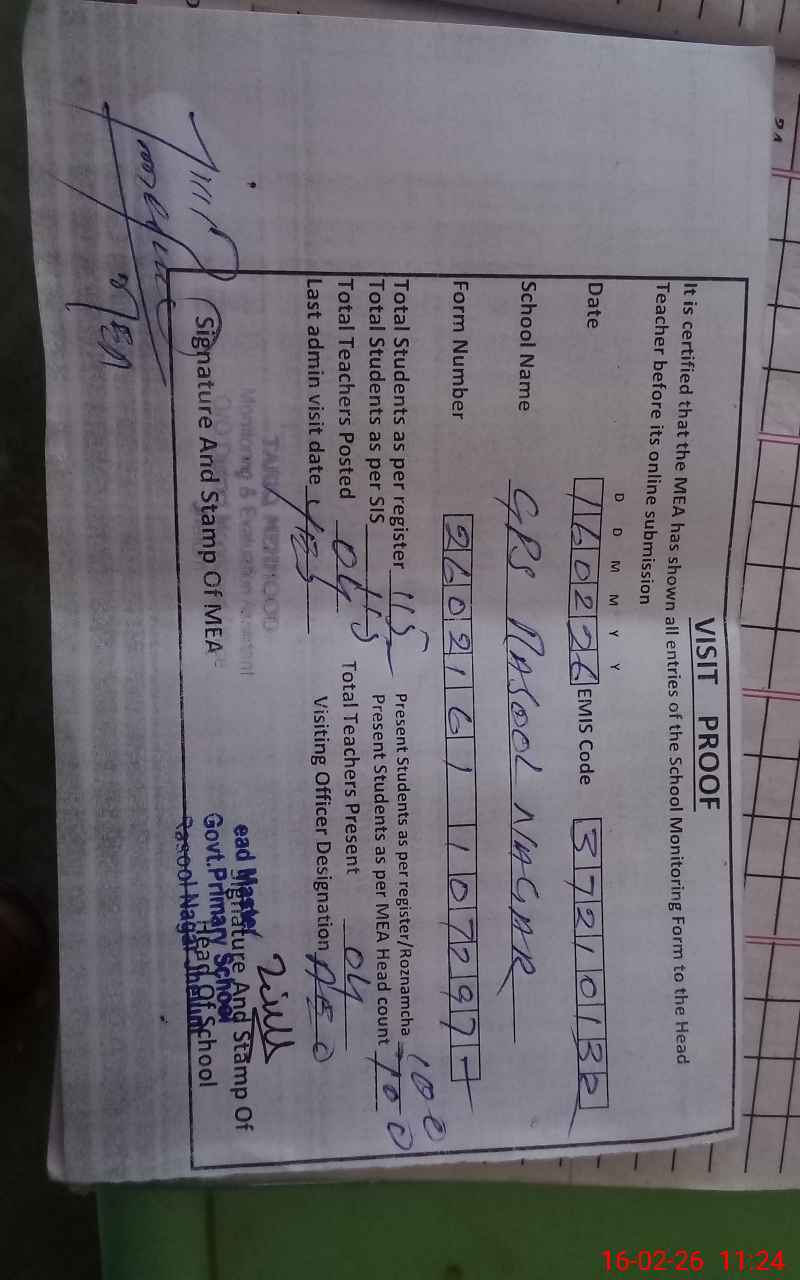 VISIT PROOF
It is certified that the MEA has shown all entries of the School Monitoring Form to the Head
Teacher before its online submission
D D M M Y Y
Date 160226 EMIS Code 37210132
School Name GPS RASOOL NAGAR
Form Number
Total Students as per register 115 Present Students as per register/Roznamcha 100
Total Students as per SIS 115 Present Students as per MEA Head count 100
Total Teachers Posted 04 Total Teachers Present 04
Last admin visit date Visiting Officer Designation AEO
Signature And Stamp Of MEA
Signature And Stamp Of
Head Of School
TARIQ MEHMOOD
Monitoring & Evaluation Assistant
ead Master
Govt.Primary School
Rasool Nagar Jhelum
MEA
16-02-26 11:24